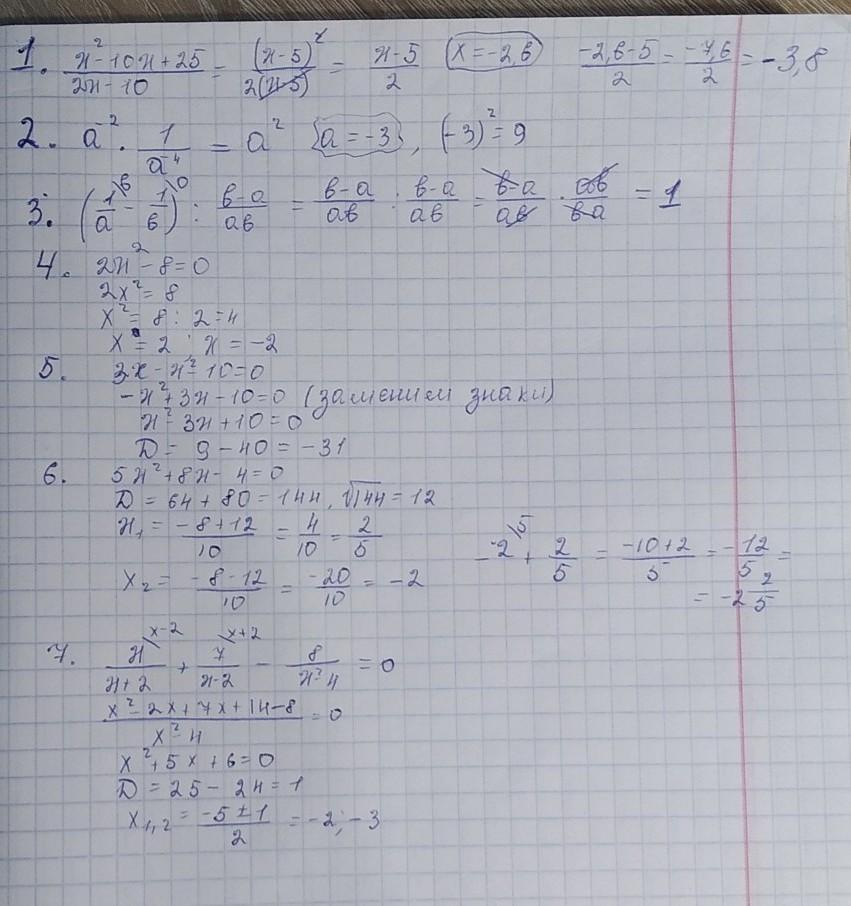 1. (x²-10x+25)/(2x-10) = (x-5)²/(2(x-5)) = (x-5)/2 (x=-2,6) (-2,6-5)/2 = -7,6/2 = -3,8
2. a⁻² · 1/a⁻⁴ = a² {a=-3}, (-3)²=9
3. (1/a - 1/в) : (в-a)/aв = (в-a)/aв : (в-a)/aв = (в-a)/aв · aв/(в-a) = 1
4. 2x²-8=0
2x²=8
x²=8:2=4
x=2; x=-2
5. 3x-x²-10=0
-x²+3x-10=0 (заменим знаки)
x²-3x+10=0
D=9-40=-31
6. 5x²+8x-4=0
D=64+80=144, √144=12
x₁= (-8+12)/10 = 4/10 = 2/5
-2 + 2/5 = (-10+2)/5 = -12/5 =
x₂= (-8-12)/10 = -20/10 = -2
= -2 2/5
7. x/(x+2) + 7/(x-2) - 8/(x²-4) = 0
(x²-2x+7x+14-8)/(x²-4) = 0
x²+5x+6=0
D=25-24=1
x₁,₂= (-5±1)/2 = -2; -3